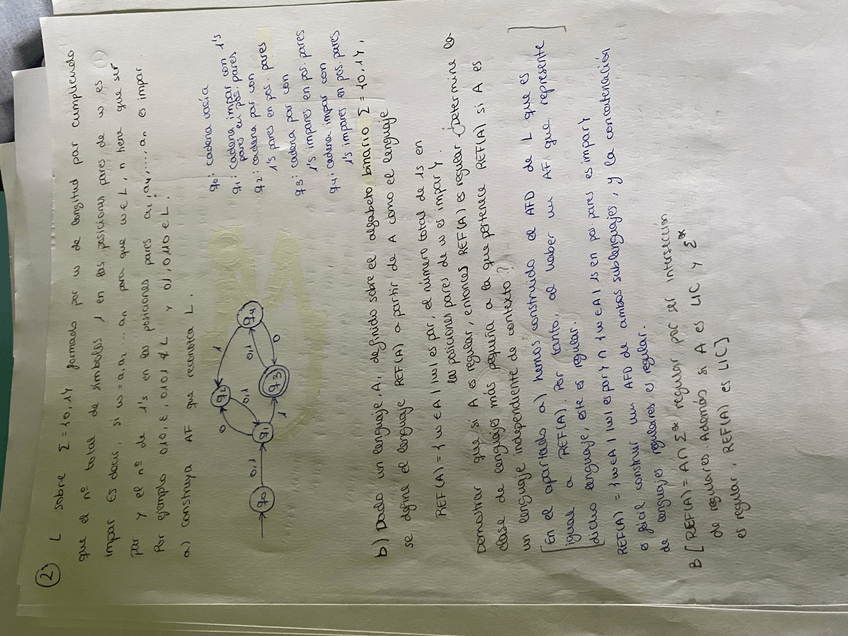 ② L sobre Σ = {0,1} formado por w de longitud par cumpliendo
que el nº total de símbolos 1 en las posiciones pares de w es
impar. Es decir, si w = a₁a₂...an para que w ∈ L, n tiene que ser
par y el nº de 1's en las posiciones pares a₂, a₄, ..., an es impar.
Por ejemplo 010, ε, 0101 ∉ L y 01, 0110 ∈ L.
a) construya AF que reconozca L.
q0: cadena vacía
q1: cadena impar con 1's
pares en pos pares
q2: cadena par con
1's pares en pos. pares
q3: cadena par con
1's impares en pos. pares
q4: cadena impar con
1's impares en pos. pares
q0 0,1 q1 0 0,1 q2 1 q3 0,1 0 q4 1
b) Dado un lenguaje, A, definido sobre el alfabeto binario Σ = {0,1},
se define el lenguaje REF(A) a partir de A como el lenguaje
REF(A) = { w ∈ A | |w| es par, el número total de 1s en
las posiciones pares de w es impar }.
Demostrar que si A es regular, entonces REF(A) es regular. ¿Determine la
clase de lenguajes más pequeña a la que pertenece REF(A) si A es
un lenguaje independiente de contexto?
[En el apartado a) hemos construido el AFD de L que es
igual a REF(A). Por tanto, al haber un AF que represente
dicho lenguaje, este es regular.
REF(A) = {w ∈ A | |w| es par} ∩ {w ∈ A | 1s en pos pares es impar}
es fácil construir un AFD de ambos sublenguajes, y la concatenación
de lenguajes regulares es regular.
B [REF(A) = A ∩ Σ* regular por ser intersección
de regulares. Además si A es LIC y Σ*
es regular, REF(A) es LIC]